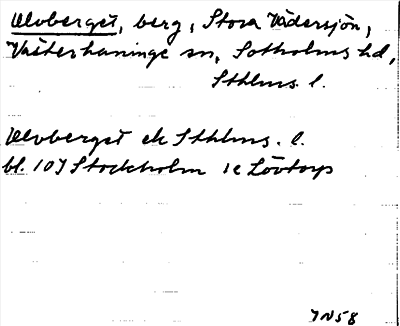 Ulvberget, berg, Stora Vädersjön,
Västerhaninge sn, Sotholms hd,
Sthlms. l.
Ulvberget ek Sthlms. l.
bl. 107 Stockholm 1e Lövtorp
JN58